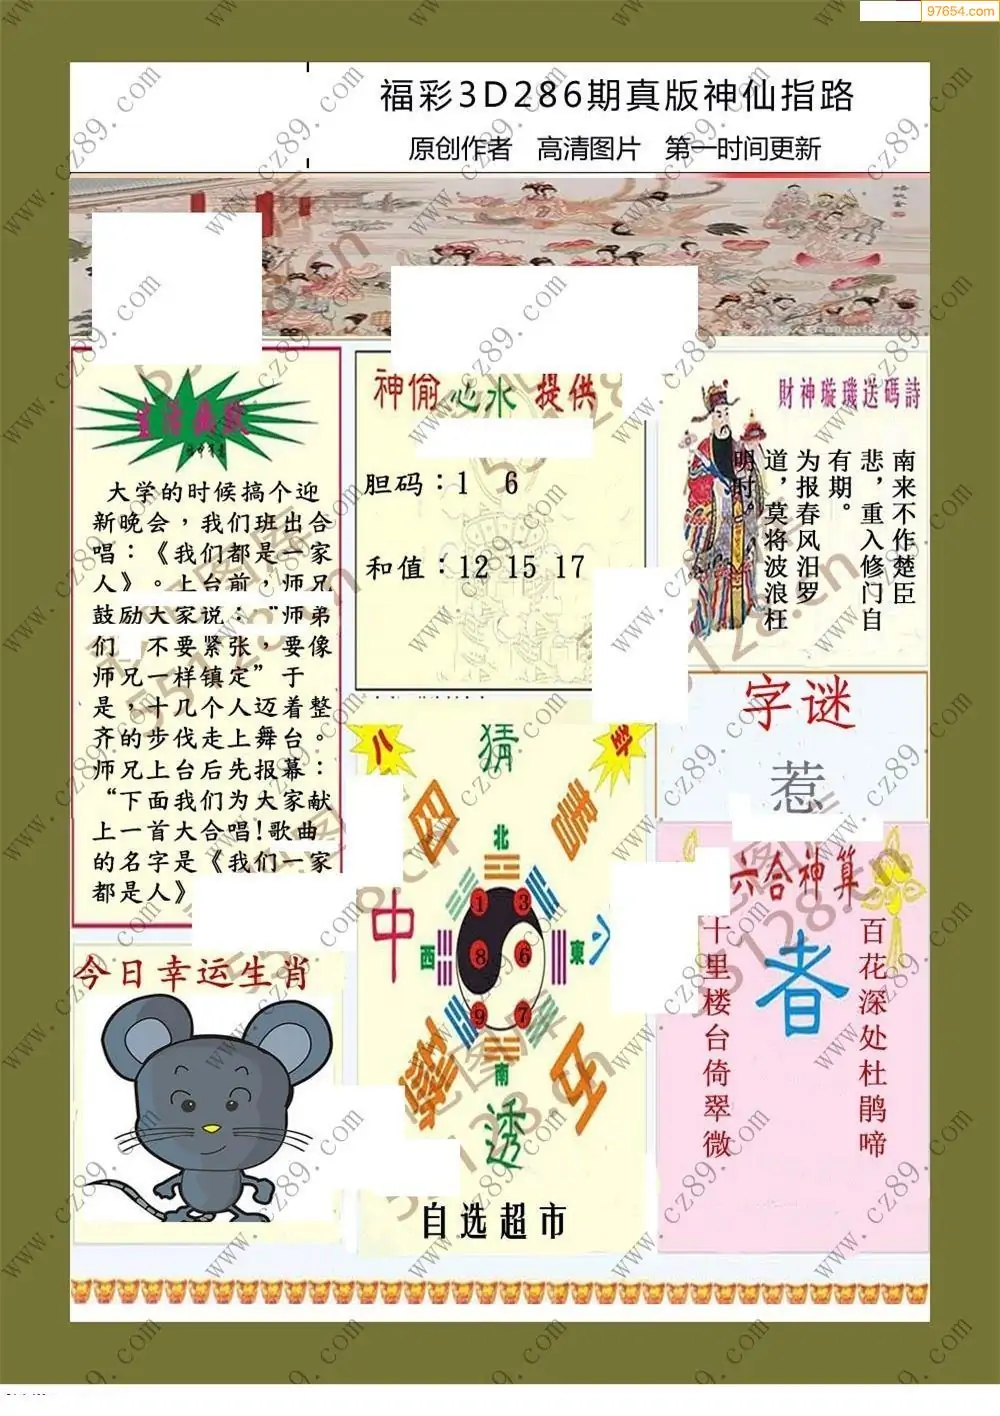 97654.com
福彩3D286期真版神仙指路
原创作者 高清图片 第一时间更新
生活幽默
大学的时候搞个迎
新晚会，我们班出合
唱：《我们都是一家
人》。上台前，师兄
鼓励大家说：“师弟
们，不要紧张，要像
师兄一样镇定”于
是，十几个人迈着整
齐的步伐走上舞台。
师兄上台后先报幕：
“下面我们为大家献
上一首大合唱!歌曲
的名字是《我们一家
都是人》
神偷心水 提供
胆码：1 6
和值：12 15 17
財神璇璣送碼詩
南来不作楚臣
悲，重入修门自
有期。
为报春风汨罗
道，莫将波浪枉
明时。
字谜
惹
八
卦
猜
图
中
透
北
西
東
南
1 3
8 6
9 7
自选超市
六合神算
百花深处杜鹃啼
者
十里楼台倚翠微
今日幸运生肖
www.cz89.com
55128.cn